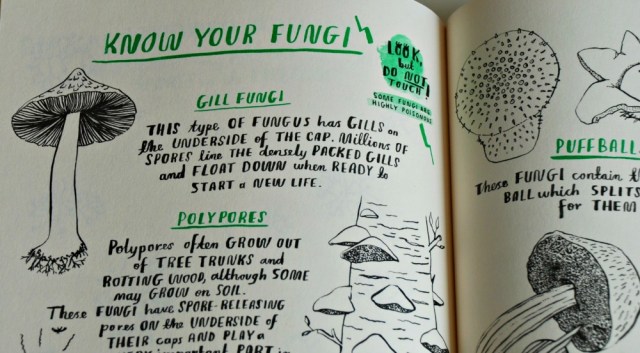 KNOW YOUR FUNGI
LOOK,
but
DO NOT
TOUCH!
SOME FUNGI ARE
HIGHLY POISONOUS
GILL FUNGI
THIS type OF FUNGUS has GILLS on
the UNDERSIDE OF THE CAP. Millions OF
SPORES line THE densely PACKED GILLS
and FLOAT DOWN when READY to
START a NEW LIFE.
POLYPORES
Polypores often GROW OUT
of TREE TRUNKS and
ROTTING WOOD, although SOME
may GROW on SOIL.
These FUNGI have SPORE-RELEASING
pores ON the UNDERSIDE of
THEIR caps AND PLAY a
VERY important PART in
PUFFBALL
These FUNGI contain
BALL which SPLITS
for THEM